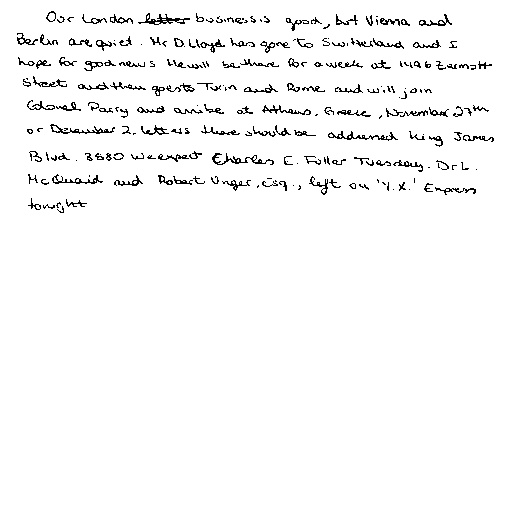 Our London letter business is good, but Vienna and
Berlin are quiet. Mr D. Lloyd has gone to Switzerland and I
hope for good news He will be there for a week at 1496 Zermott
Street and then goes to Turin and Rome and will join
Colonel Parry and arrive at Athens, Greece, November 27th
or December 2. Letters there should be addressed King James
Blvd. 3580 We expect Charles E. Fuller Tuesday. Dr L.
McQuaid and Robert Unger, Esq., left on 'Y.X.' Express
tonight